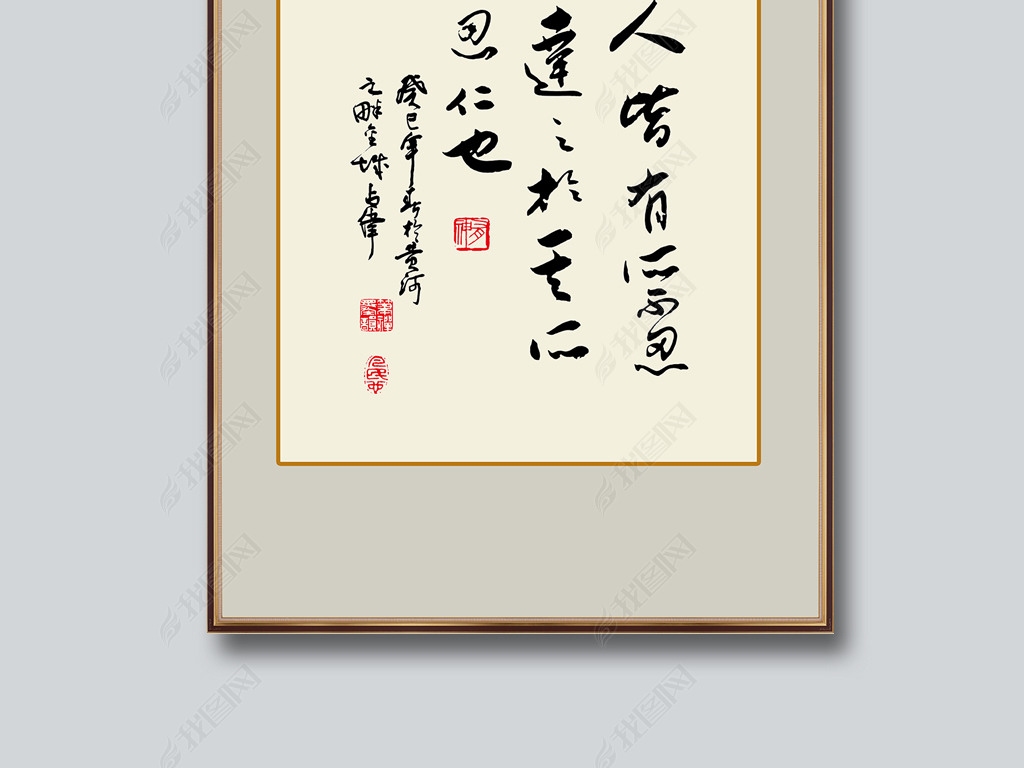 人皆有所不忍
達之於其所
忍仁也
癸巳年春於黄河
之畔金城占
找图网